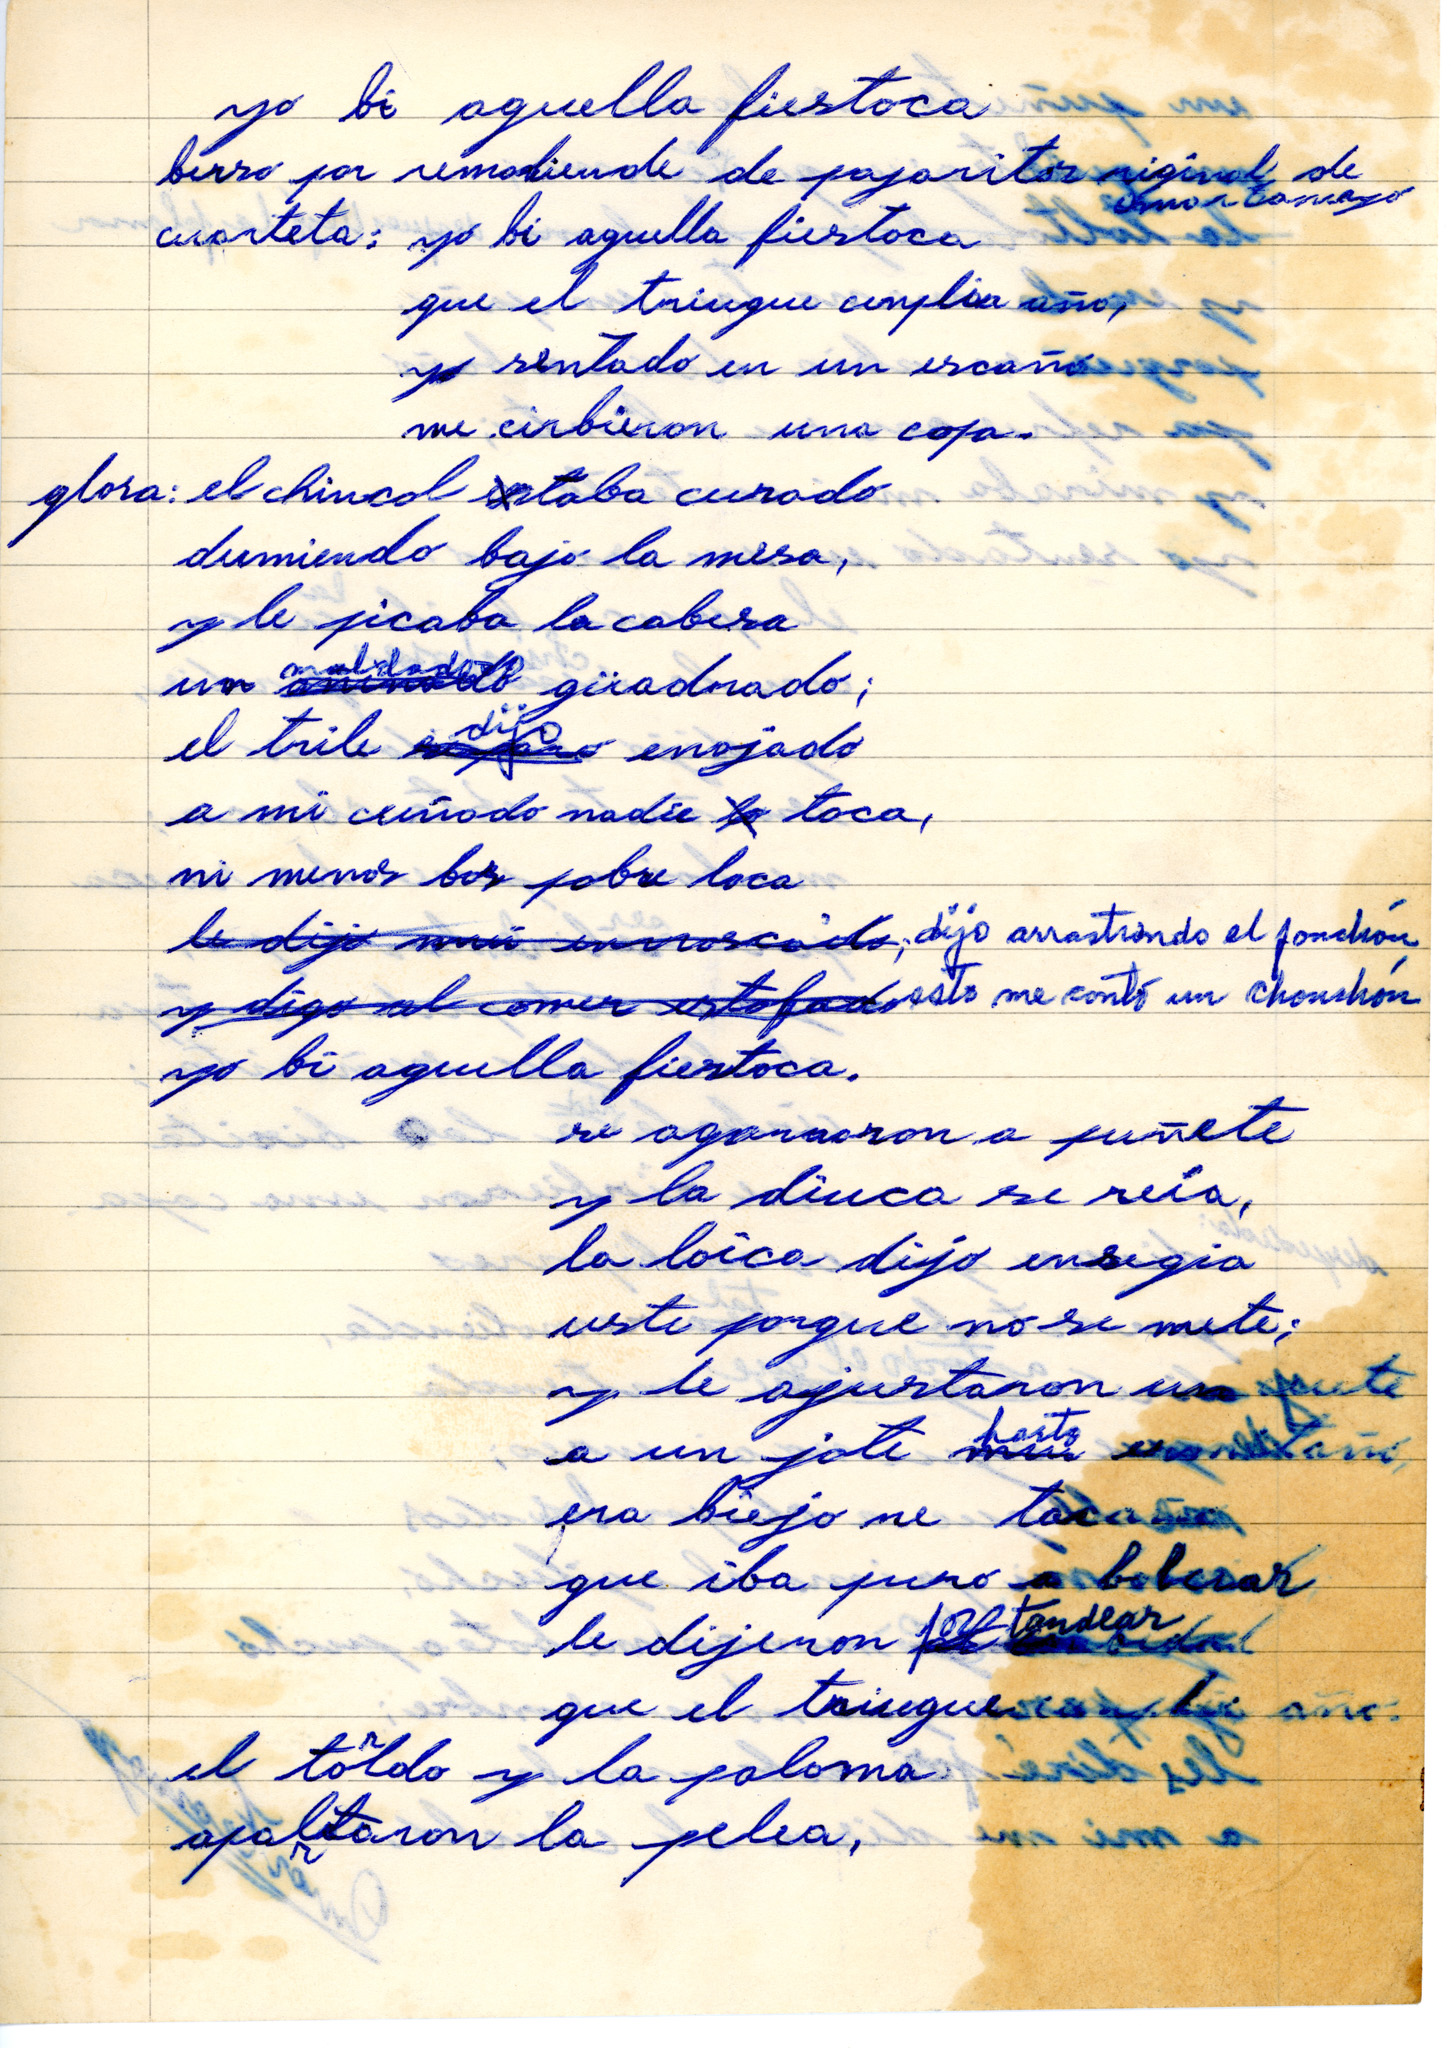 yo bi aquella fiestoca
berso por remoliende de pajaritos riginal de
omar tamayo
cuarteta: yo bi aquella fiestoca
que el triuque cunplia año,
y sentado en un escaño
me cirbieron una copa.
glosa: el chincol estaba curado
durmiendo bajo la mesa,
y le picaba la cabesa
un malbado güeadrado;
el trile dijo enojado
a mi cuñado nadie lo toca,
ni menos bos pobre loca
le dijo mui enroscado, dijo arrastrando el ponchón
y digo al comer estofado esto me contó un chonchón
yo bi aquella fiestoca.
se agararon a puñete
y la diuca se reía,
la loica dijo ensegia
uste porque no se mete;
y le ajustaron un
a un jote harto
era biejo re
que iba puro a
le dijeron por tandear
que el triuque cunplia año.
el tordo y la paloma
apartaron la pelea,